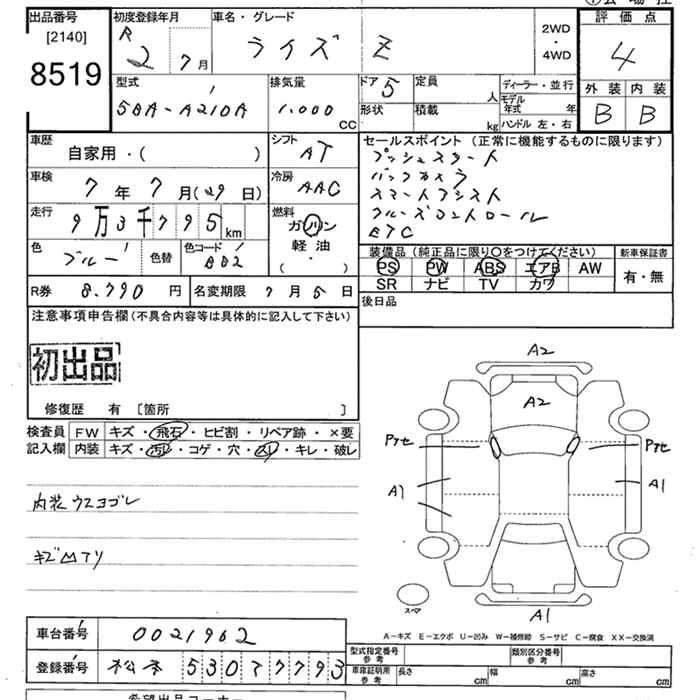 出品番号
[2140]
8519
初度登録年月
R
2 7月
車名・グレード
ライズ Z
2WD
・
4WD
評価点
4
外装 内装
B B
型式
5BA-A210A
排気量
1,000 CC
ドア 5
形状
定員 人
積載 kg
ディーラー・並行
モデル年式 年
ハンドル 左・右
車歴
自家用・( )
シフト
AT
車検
7年7月(29日)
冷房
AAC
走行
9万3千795km
燃料
ガソリン
軽油
・( )
色
ブルー
色替
色コード
BB2
セールスポイント (正常に機能するものに限ります)
プッシュスタート
バックカメラ
スマートアシスト
クルーズコントロール
ETC
装備品(純正品に限り○をつけてください)
PS PW ABS エアB AW
SR ナビ TV カワ
新車保証書
有・無
R券 8,790円
名変期限 7月5日
後日品
注意事項申告欄(不具合内容等は具体的に記入して下さい)
初出品
修復歴 有 [箇所 ]
検査員
記入欄
FW キズ・飛石・ヒビ割・リペア跡・×要
内装 キズ・汚レ・コゲ・穴・スレ・キレ・破レ
内装ウスヨゴレ
キズ凹アリ
A2
A2
Pアセ
Pアセ
A1
A1
スペア
A1
A-キズ E-エクボ U-凹み W-補修跡 S-サビ C-腐食 XX-交換済
車台番号 0021962
登録番号 松本 530 7 7793
型式指定番号
参考
類別区分番号
参考
車庫証明用
参考
長さ cm
幅 cm
高さ cm
希望出品コーナー